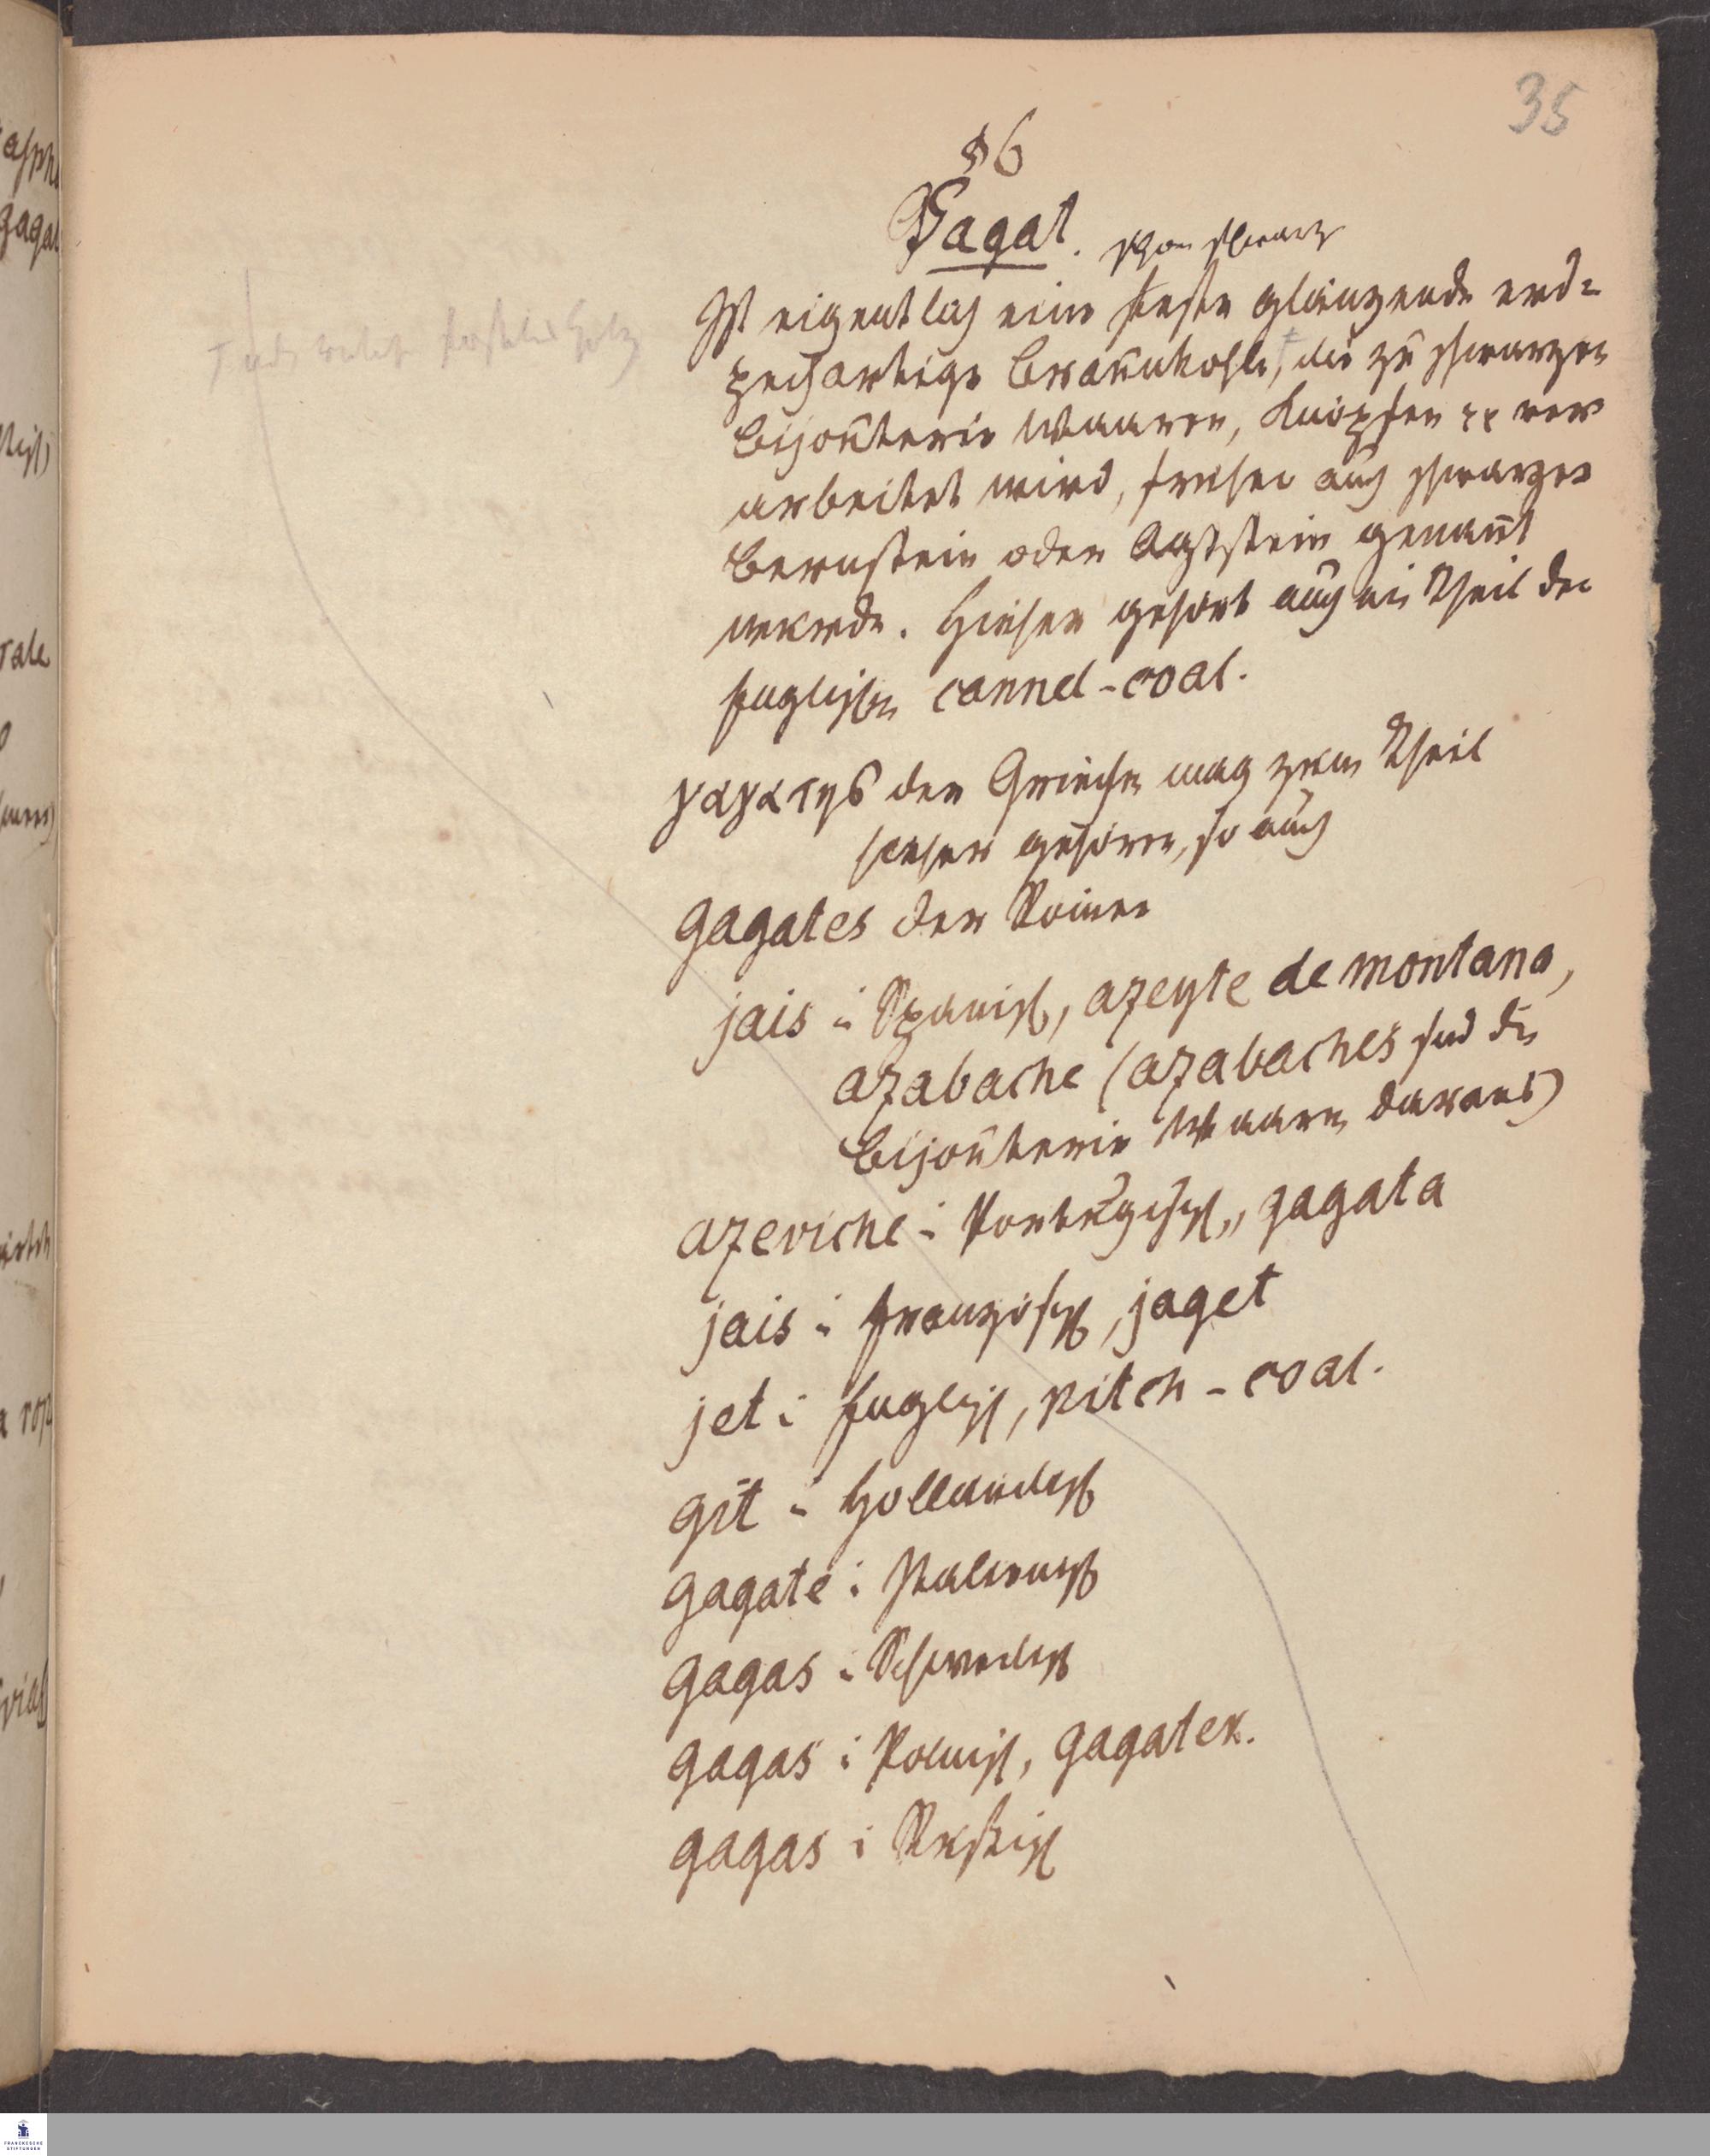 35
§ 6
Gagat. schon schwarz
Ist eigentlich eine feste glänzende erd-
pechartige Braunkohle, † die zu schwarzen
Bijouterie Waaren, Knöpfen pp ver
arbeitet wird, früher auch schwarzer
Bernstein oder Agtstein genannt
wurde. Hieher gehört auch ein Theil der
Englischen cannel-coal.
γαγατης der Griechen mag zum Theil
hieher gehören, so auch
gagates der Römer
jais i Spanisch, azeyte de montana,
azabache (azabaches sind die
Bijouterie Waaren daraus)
azeviche i Portugisisch, gagata
jais i französisch, jaget
jet i Englisch, pitch-coal.
git i Holländisch
gagate i Italienisch
gagas i Schwedisch
gagas i Polnisch, gagatek.
gagas i Rußisch
† Holz
asph
gagat
FRANCKESCHE
STIFTUNGEN